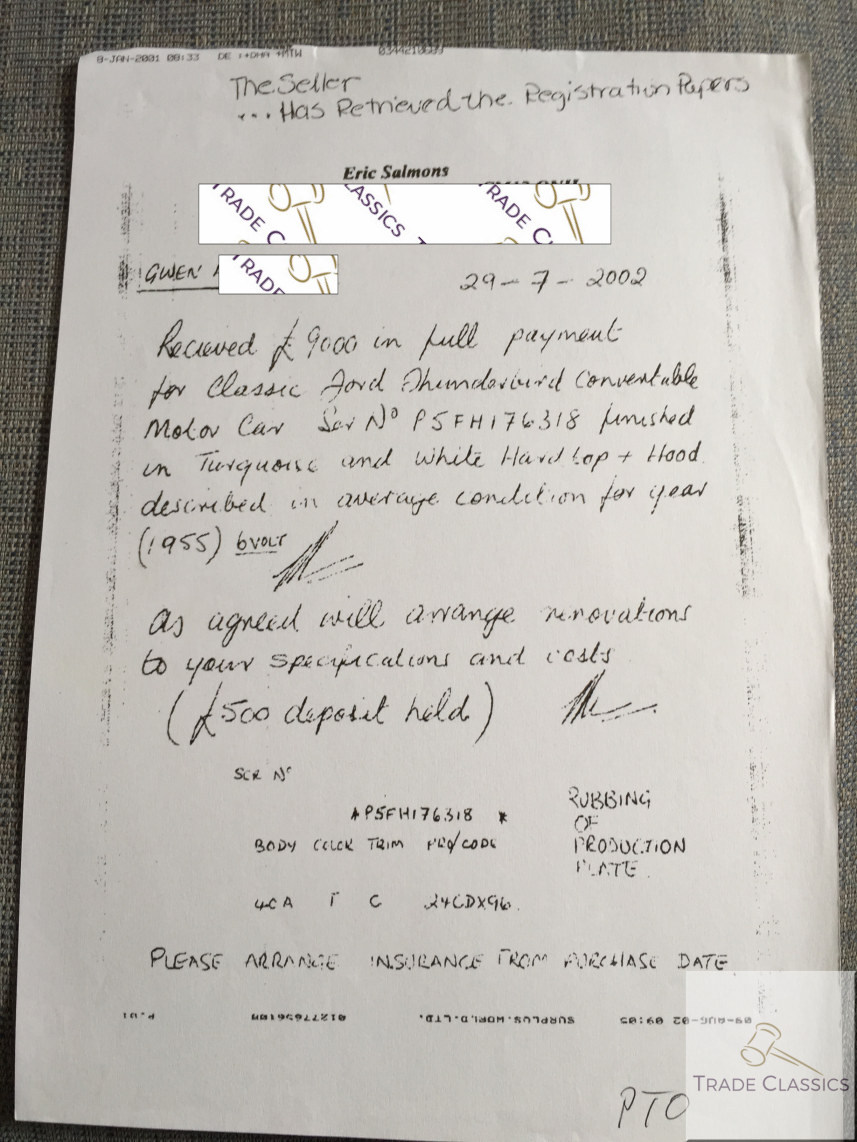 9-JAN-2001 00:33 DE
The Seller
... Has Retrieved the Registration Papers
Eric Salmons
TRADE CLASSICS TRADE
GWEN
TRADE
29-7-2002
Recieved £9000 in full payment
for Classic Ford Thunderbird Convertable
Motor Car Ser No P5FH176318 finished
in Turquoise and White Hard top + Hood
described in average condition for year
(1955) 6 VOLT
as agreed will arrange renovations
to your specifications and costs
(£500 deposit held)
SER No
*P5FH176318 *
RUBBING
OF
PRODUCTION
PLATE
BODY COLOR TRIM PRO/CODE
40A T C
PLEASE ARRANGE INSURANCE FROM PURCHASE DATE
09-AUG-02 09:05 SURPLUS.WORLD.LTD. P.01
PTO
TRADE CLASSICS